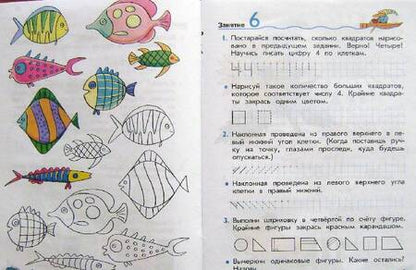 Занятие 6
1. Постарайся посчитать, сколько квадратов нарисо-
вано в предыдущем задании. Верно! Четыре!
Научись писать цифру 4 по клеткам.
Нарисуй такое количество больших квадратов,
которое соответствует числу 4. Крайние квадра-
ты закрась одним цветом.
2. Наклонная проведена из правого верхнего в ле-
вый нижний угол клетки. (Когда поставишь руч-
ку на точку, глазами проследи, куда будешь
опускаться.)
Наклонная проведена из левого верхнего угла
клетки в правый нижний.
3. Выполни штриховку в четвёртой по счёту фигуре.
Крайние фигуры закрась красным карандашом.
Вычеркни одинаковые фигуры. Какие остались?
Назови.